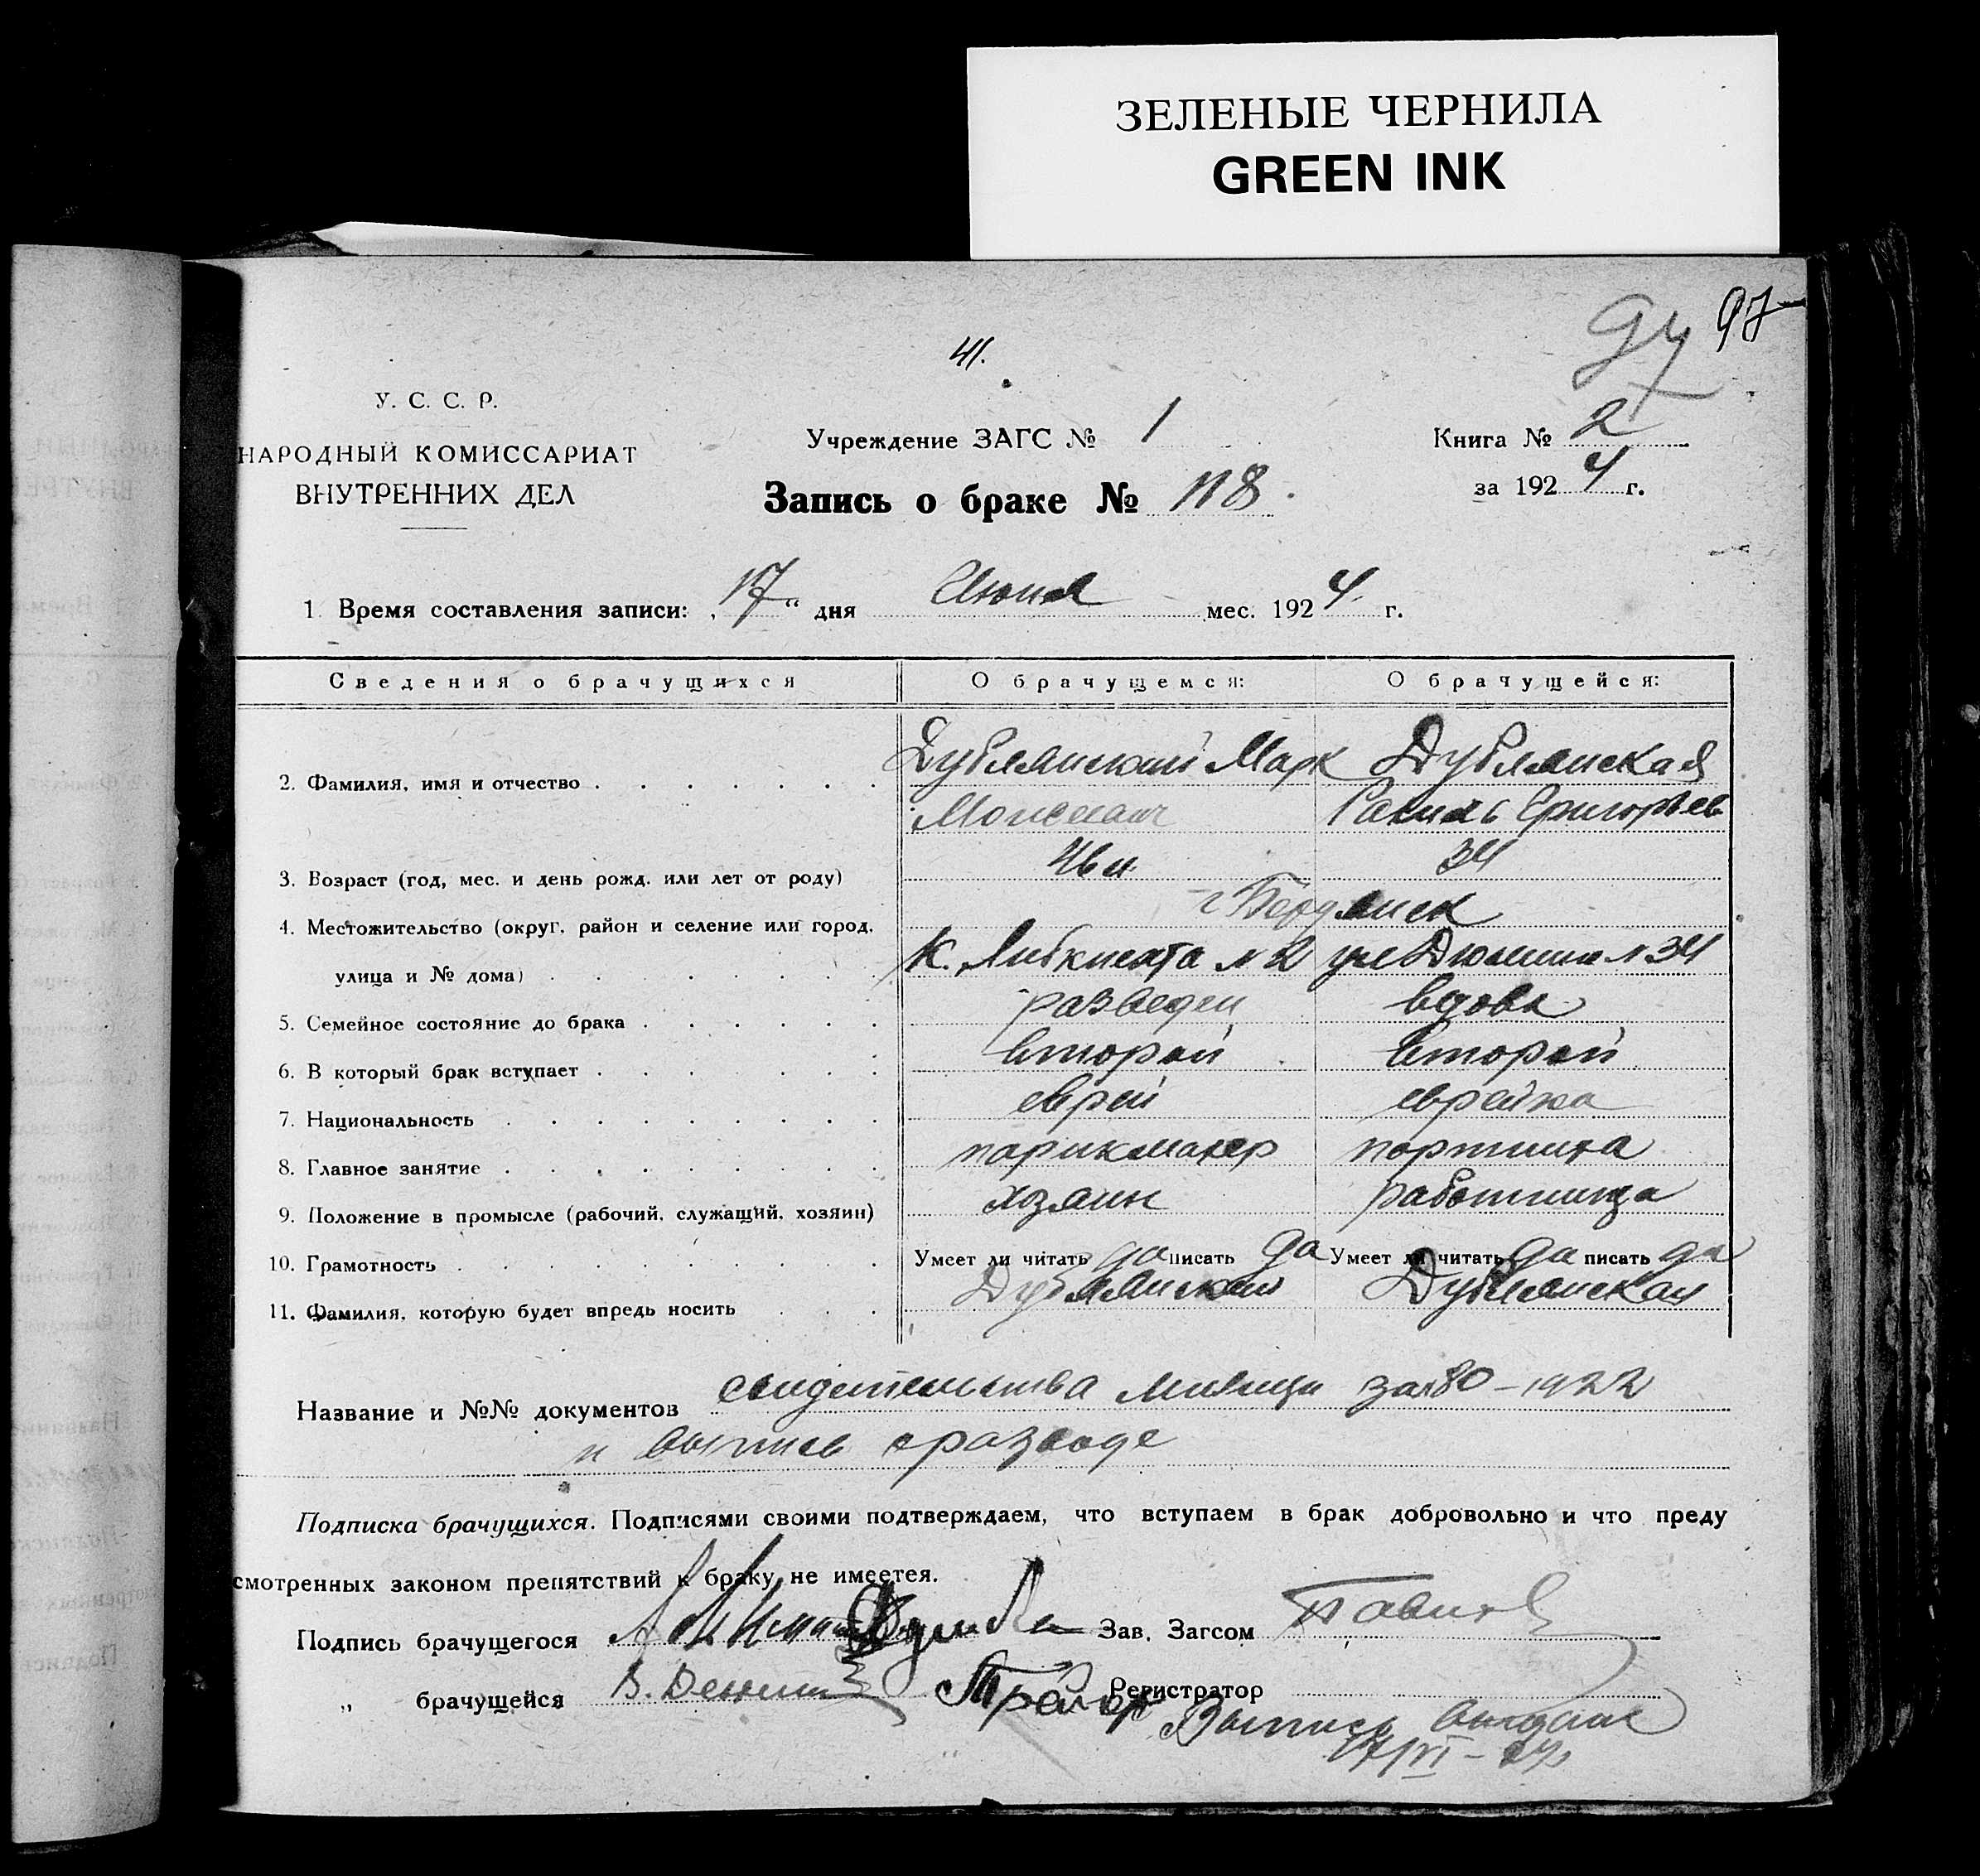 ЗЕЛЕНЫЕ ЧЕРНИЛА
GREEN INK
97
97
41.
У. С. С. Р.
НАРОДНЫЙ КОМИССАРИАТ
ВНУТРЕННИХ ДЕЛ
Учреждение ЗАГС № 1
Книга № 2
за 1924 г.
Запись о браке № 118.
1. Время составления записи: „17“ дня Июня мес. 1924 г.
Сведения о брачущихся О брачущемся: О брачущейся:
2. Фамилия, имя и отчество Дублянский Марк Дублянская
Моисеевич Рахиль Григорьев
3. Возраст (год, мес. и день рожд. или лет от роду) 46 л. 34
4. Местожительство (округ, район и селение или город, г. Бердянск
улица и № дома) К. Либкнехта № 2 ул Дюмина № 34
5. Семейное состояние до брака разведен вдова
6. В который брак вступает второй второй
7. Национальность еврей еврейка
8. Главное занятие парикмахер портниха
9. Положение в промысле (рабочий, служащий, хозяин) хозяин работница
10. Грамотность Умеет ли читать да писать да Умеет ли читать да писать да
11. Фамилия, которую будет впредь носить Дублянский Дублянская
Название и №№ документов свидетельства милиции за № 80 – 1922
и выпись о разводе
Подписка брачущихся. Подписями своими подтверждаем, что вступаем в брак добровольно и что преду
смотренных законом препятствий к браку не имеетея.
Подпись брачущегося Зав. Загсом
„ брачущейся Регистратор
Выпись выдана
17/VI – 24